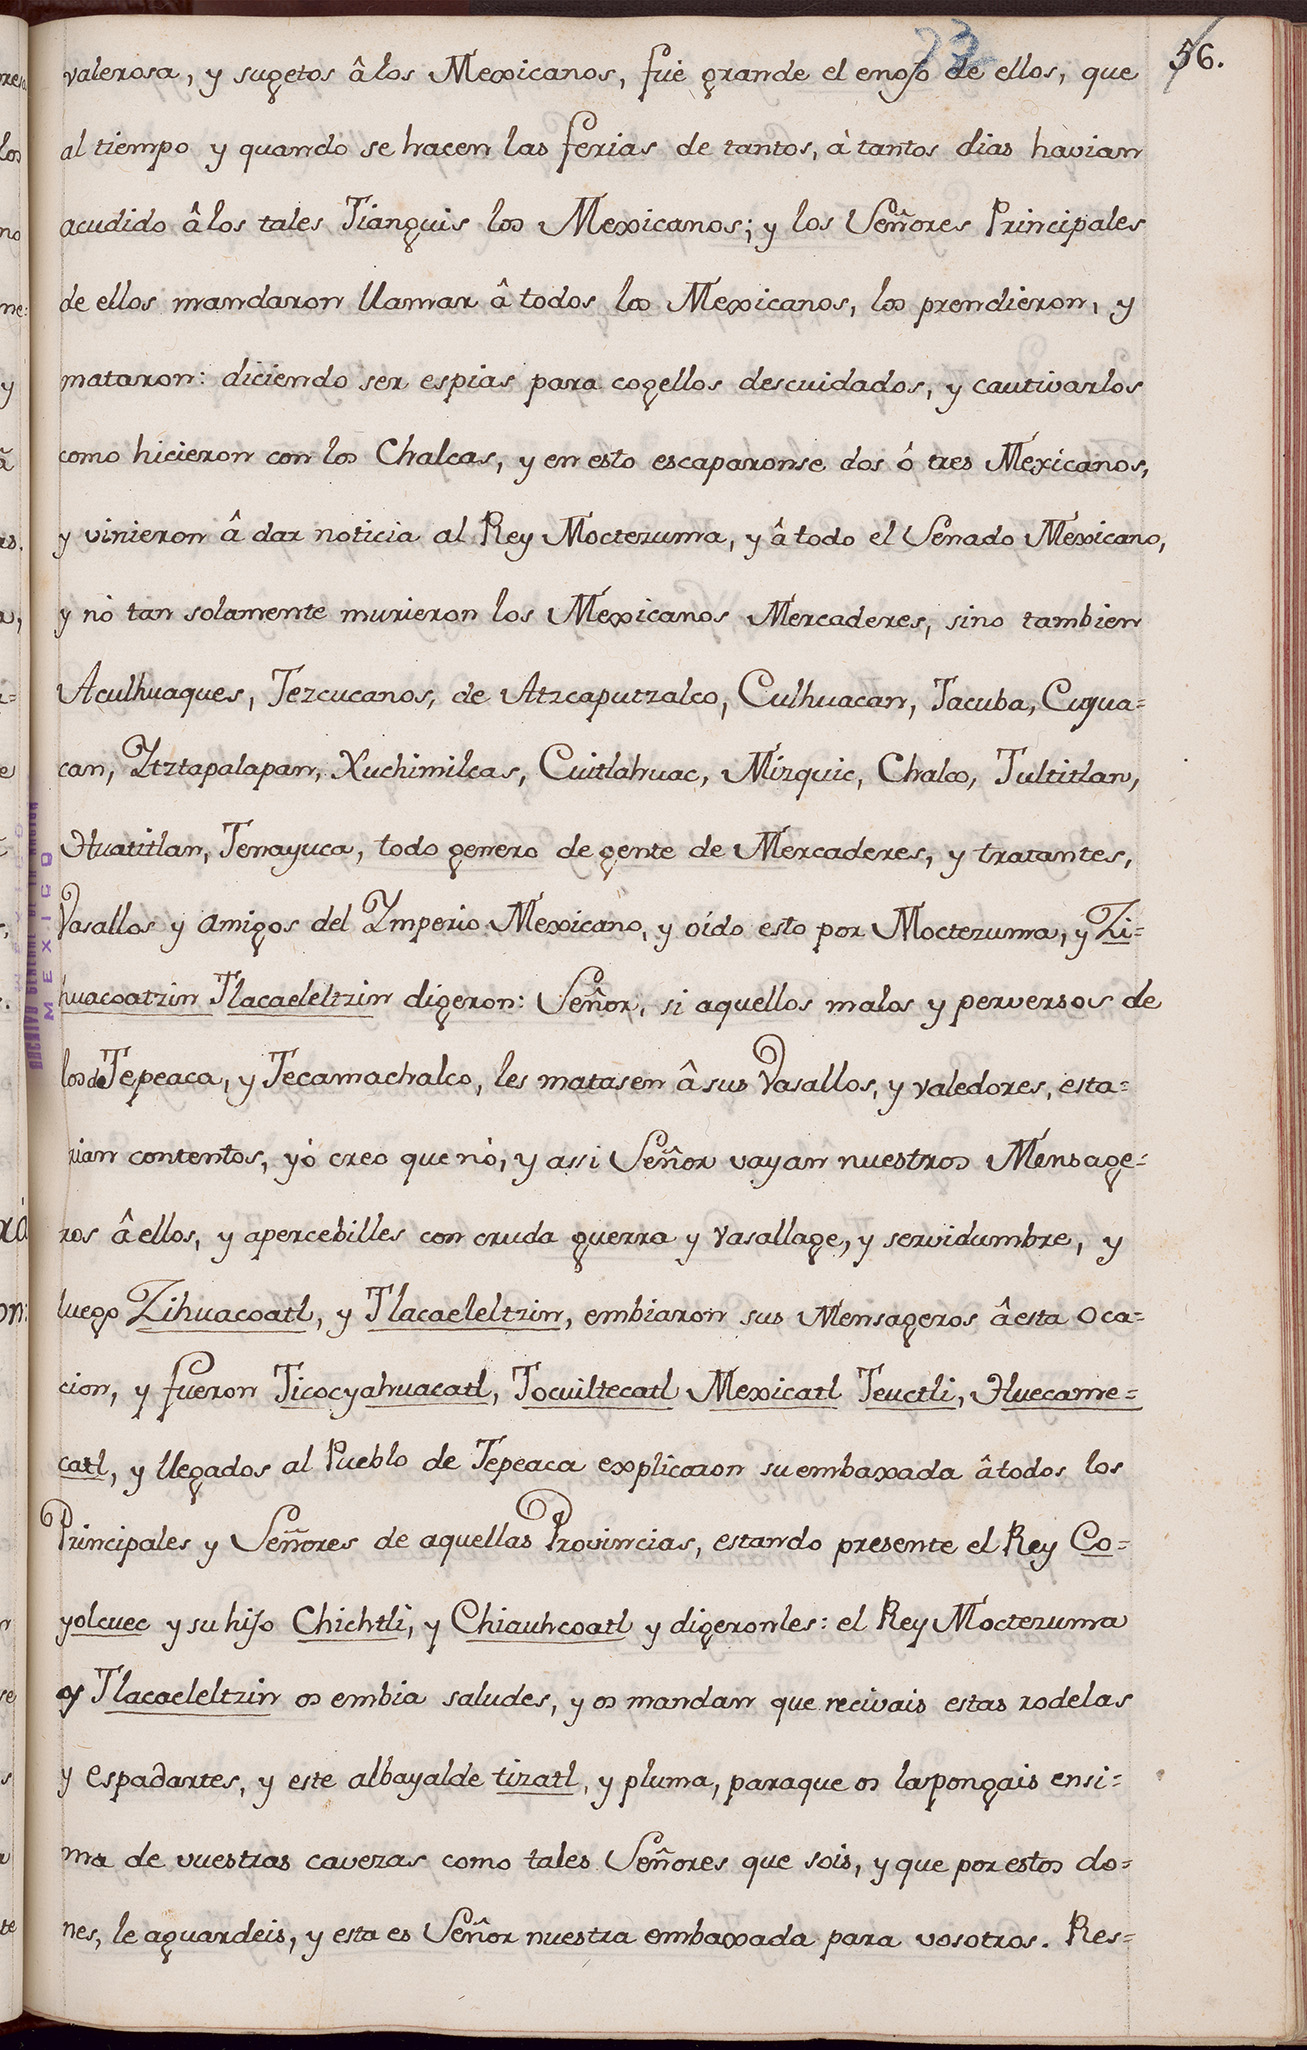 73
56.
valerosa, y sugetos â los Mexicanos, fue grande el enojo de ellos, que
al tiempo y quando se hacen las ferias de tantos, à tantos dias havian
acudido â los tales Tianguis los Mexicanos; y los Señores Principales
de ellos mandaron llamar â todos los Mexicanos, los prendieron, y
mataron: diciendo ser espias para cogellos descuidados, y cautivarlos
como hicieron con los Chalcas, y en esto escaparonse dos ó tres Mexicanos,
y vinieron â dar noticia al Rey Moctezuma, y â todo el Senado Mexicano,
y nò tan solamente murieron los Mexicanos Mercaderes, sino tambien
Aculhuaques, Tezcucanos, de Atzcaputzalco, Culhuacan, Tacuba, Cuyua=
can, Ytztapalapan, Xuchimilcas, Cuitlahuac, Mizquic, Chalco, Tultitlan,
Huatitlan, Tenayuca, todo genero de gente de Mercaderes, y tratantes,
Vasallos y amigos del Ymperio Mexicano, y oído esto por Moctezuma, y Zi=
huacoatzin Tlacaeleltzin digeron: Señor, si aquellos malos y perversos de
los de Tepeaca, y Tecamachalco, les matasen â sus Vasallos, y valedores, esta=
rian contentos, yò creo que nò, y assi Señor vayan nuestros Mensage=
ros â ellos, y apercebilles con cruda guerra y vasallage, y servidumbre, y
luego Zihuacoatl, y Tlacaeleltzin, embiaron sus Mensageros â esta oca=
cion, y fueron Ticocyahuacatl, Tocuiltecatl Mexicatl Teuctli, Huecame=
catl, y llegados al Pueblo de Tepeaca explicaron su embaxada â todos los
Principales y Señores de aquellas Provincias, estando presente el Rey Co=
yolcuec y su hijo Chichtli, y Chiauhcoatl y digeronles: el Rey Moctezuma
y Tlacaeleltzin os embia saludes, y os mandan que recivais estas rodelas
y espadartes, y este albayalde tizatl, y pluma, paraque os las pongais ensi=
ma de vuestras cavezas como tales Señores que sois, y que por estos do=
nes, le aguardeis, y esta es Señor nuestra embaxada para vosotros. Res=
ARCHIVO GENERAL DE LA NACION
MEXICO